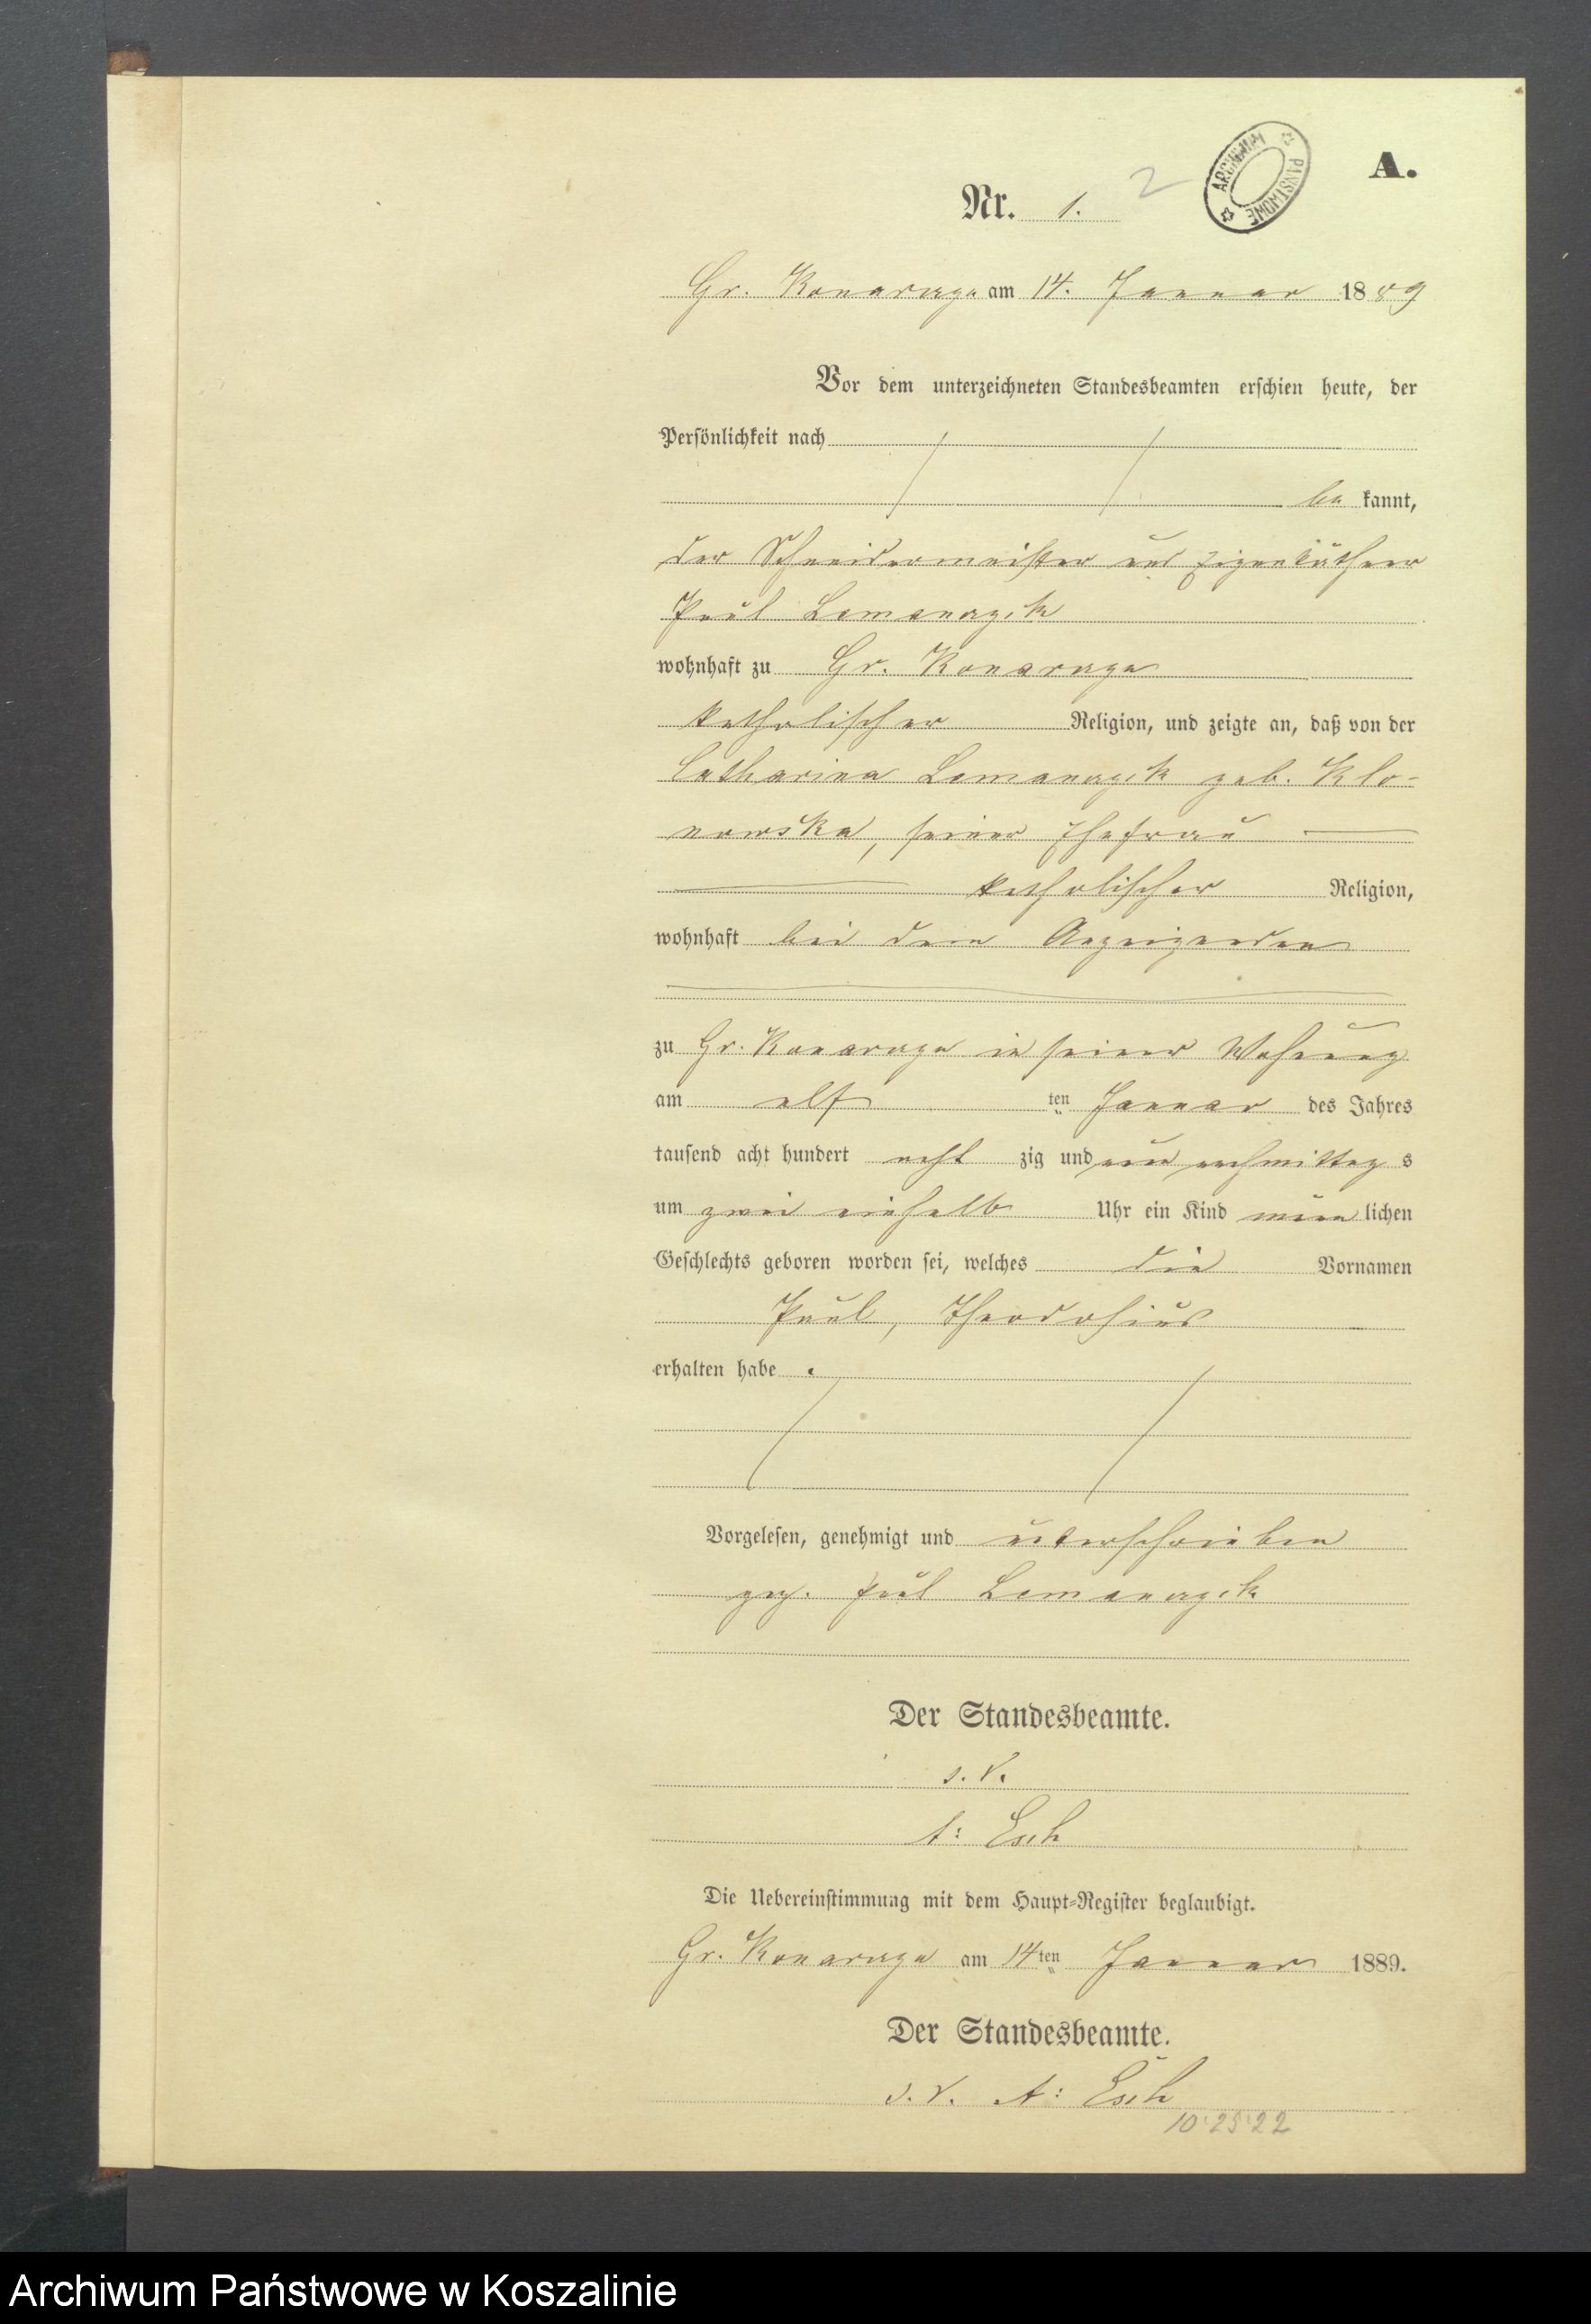 A.
ARCHIWUM PAŃSTWOWE
Nr. 1. 2
Gr. Konarczyn am 14. Januar 1889
Vor dem unterzeichneten Standesbeamten erschien heute, der
Persönlichkeit nach
be kannt,
der Schneidermeister und Eigenkäthner
Paul Lemanczik
wohnhaft zu Gr. Konarczyn
katholischer Religion, und zeigte an, daß von der
Catharina Lemanczik geb. Klo-
nowska, seiner Ehefrau
katholischer Religion,
wohnhaft bei dem Anzeigenden
zu Gr. Konarczyn in seiner Wohnung
am elf ten Januar des Jahres
tausend acht hundert acht zig und neun nachmittag s
um zwei einhalb Uhr ein Kind männlichen
Geschlechts geboren worden sei, welches die Vornamen
Paul, Theodosius
erhalten habe.
Vorgelesen, genehmigt und unterschrieben
gez. Paul Lemanczik
Der Standesbeamte.
s. V.
A: Esch
Die Uebereinstimmung mit dem Haupt-Register beglaubigt.
Gr. Konarczyn am 14ten Januar 1889.
Der Standesbeamte.
s. V. A: Esch
10 25 22
Archiwum Państwowe w Koszalinie